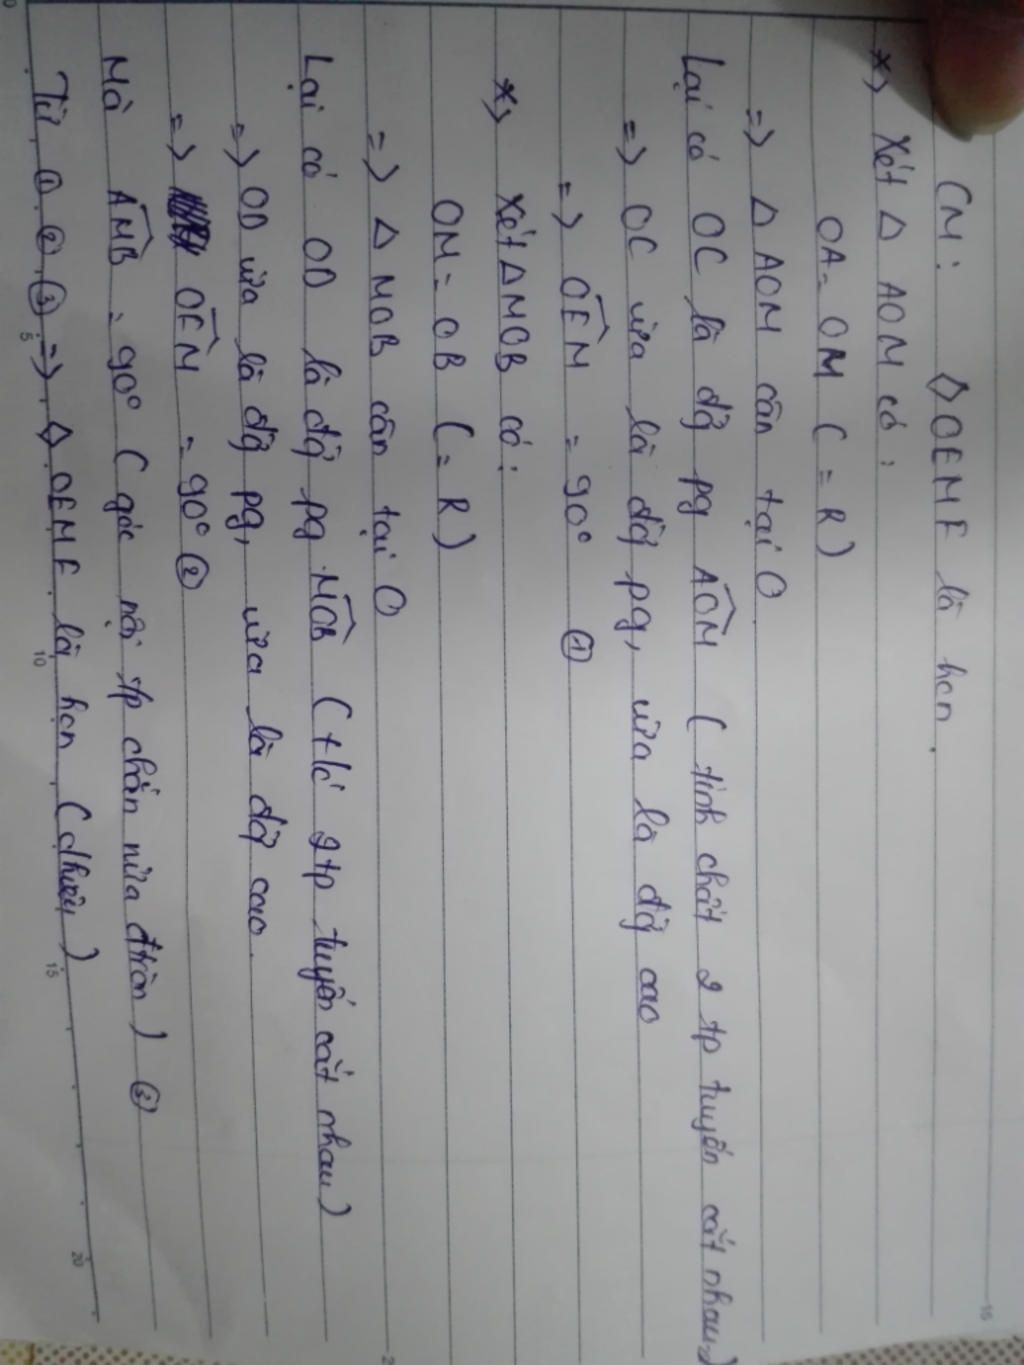 CM: ◇OEMF là hcn.
*) Xét Δ AOM có:
OA = OM (= R)
=> Δ AOM cân tại O
Lại có OC là đg pg AOM (tính chất 2 tp tuyến cắt nhau)
=> OC vừa là đg pg, vừa là đg cao
=> OEM = 90° ①
*) Xét ΔMOB có:
OM = OB (= R)
=> Δ MOB cân tại O
Lại có OD là đg pg MOB (t/c 2 tp tuyến cắt nhau)
=> OD vừa là đg pg, vừa là đg cao.
=> OFM = 90° ②
Mà AMB = 90° (góc nội tp chắn nửa đtròn) ③
Từ ① ② ③ => ◇ OEMF là hcn (dhiệu)
5
10
15
20
16